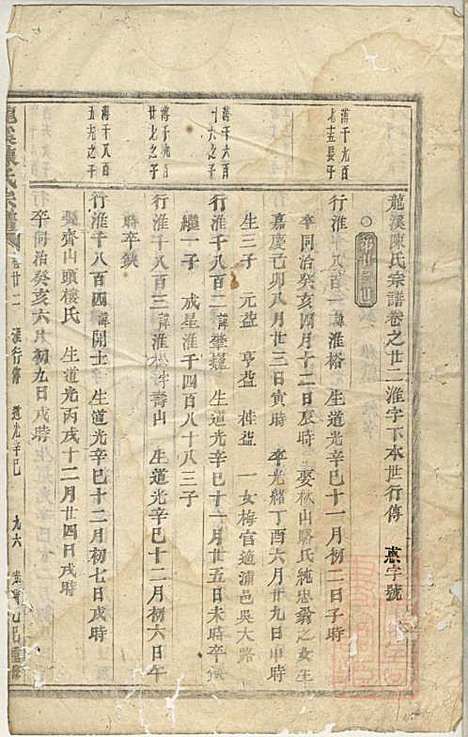 龍溪陳氏宗譜卷之廿二淮字下本世行傳 惷字號
溥千九百
七五長子
行淮千八百一諱淮裕 生道光辛巳十一月初二日子時
卒同治癸亥四月十二日辰時 娶秋山駱氏純忠翁之女生
嘉慶己卯八月廿三日寅時 卒光緒丁酉六月廿九日申時
生三子 元益 亨益 桂益 一女梅官適浦邑吳大路
溥千六百
十六之子
行淮千八百二諱 生道光辛巳十一月廿五日未時卒
繼一子 成星淮千四百八十八三子
溥千八百
廿九之子
行淮千八百三諱淮 字壽山 生道光辛巳十二月初六日午
時卒缺
溥千八百
五九之子
行淮千八百四諱開士 生道光辛巳十二月初七日戌時
娶齊山頭樓氏 生道光丙戌十二月廿四日戌時
卒同治癸亥六月初九日戌時
龍溪陳氏宗譜 卷廿二 淮行傳 道光辛巳 九六